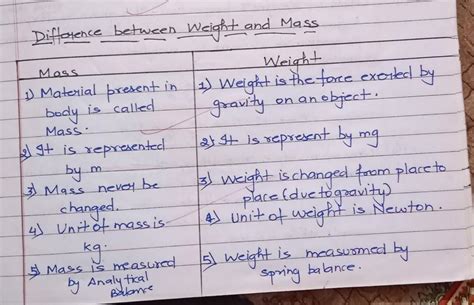 Difference between Weight and Mass
Mass
1) Material present in
body is called
Mass.
2) It is represented
by m
3) Mass never be
changed.
4) Unit of mass is
kg.
5) Mass is measured
by Analytical
Balance
Weight
1) Weight is the force exerted by
gravity on an object.
2) It is represent by mg
3) Weight is changed from place to
place (due to gravity)
4) Unit of weight is Newton.
5) Weight is measurmed by
spring balance.